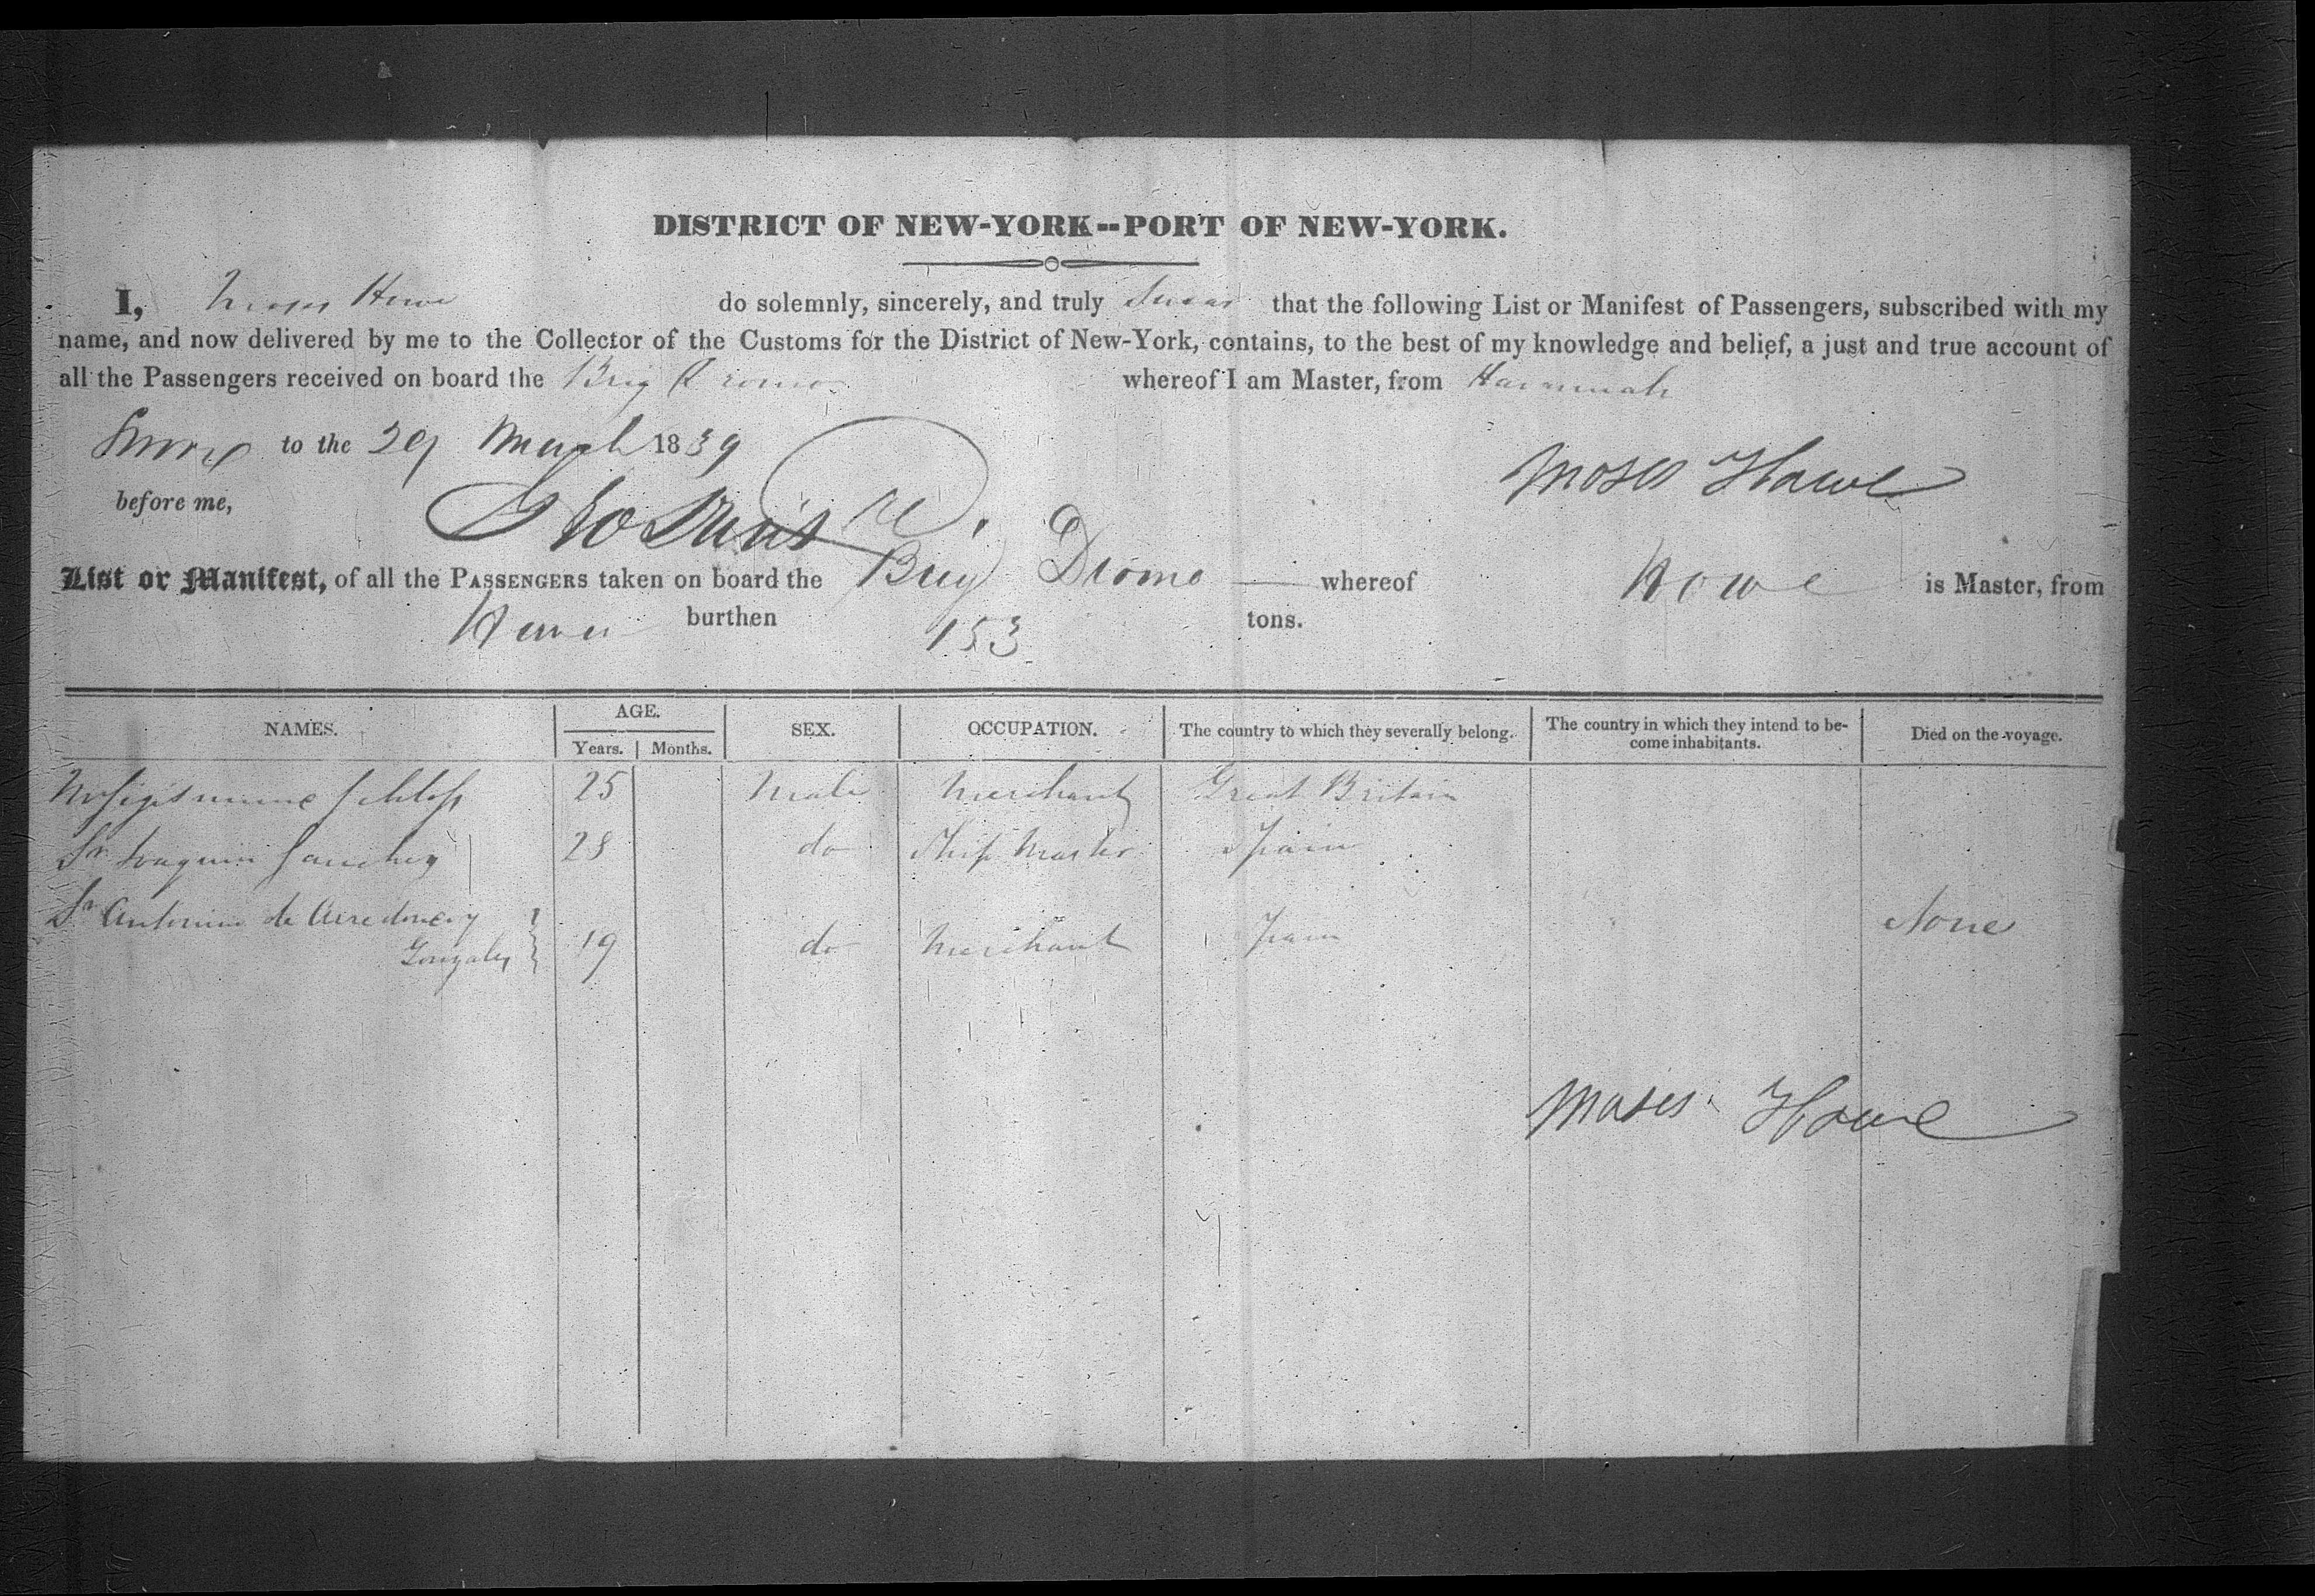 DISTRICT OF NEW-YORK--PORT OF NEW-YORK.
I, Moses Howe do solemnly, sincerely, and truly Swear that the following List or Manifest of Passengers, subscribed with my
name, and now delivered by me to the Collector of the Customs for the District of New-York, contains, to the best of my knowledge and belief, a just and true account of
all the Passengers received on board the Brig Dromo whereof I am Master, from Havannah
Sworn to the 29 March 1839
Moses Howe
before me,
List or Manifest, of all the PASSENGERS taken on board the Brig Dromo — whereof Howe is Master, from
burthen 153 tons.
NAMES. AGE. SEX. OCCUPATION. The country to which they severally belong. The country in which they intend to be-
come inhabitants. Died on the voyage.
Years. Months.
25 Male Merchant Great Britain
Sr Joaquin Sanchez 28 do Ship Master Spain
Sr Antonio de Arredondo y
Gonzales 19 do Merchant Spain None
Moses Howe